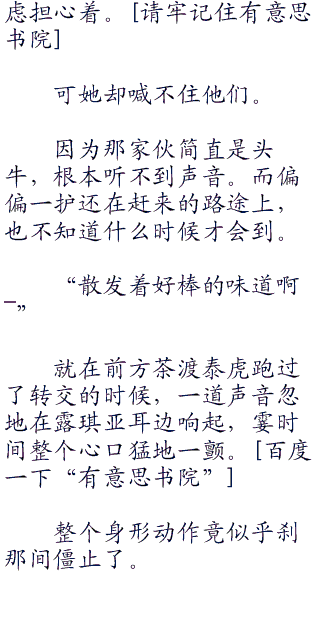 虑担心着。[请牢记住有意思
书院]
可她却喊不住他们。
因为那家伙简直是头
牛，根本听不到声音。而偏
偏一护还在赶来的路途上，
也不知道什么时候才会到。
“散发着好棒的味道啊
—”
就在前方茶渡泰虎跑过
了转交的时候，一道声音忽
地在露琪亚耳边响起，霎时
间整个心口猛地一颤。[百度
一下“有意思书院”]
整个身形动作竟似乎刹
那间僵止了。